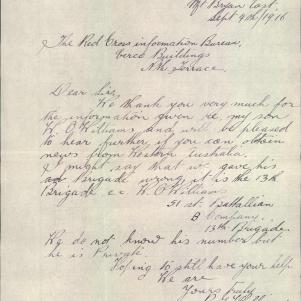 Mt Bryan East.
Sept 9th/1916
The Red Cross information Bureau,
Verco Buildings
Nth Terrace.
Dear Sir,
We thank you very much for
the information given re, my son
W. O Williams and will be pleased
to hear further, if you can obtain
news from Western Australia.
I might say that we gave his
Brigade wrong, it is the 13th
Brigade. W. O William
51 st. Battallian
B Company.
13th Brigade
We do not know his number but
he is Private.
Hoping to still have your help
We are
Yours truly